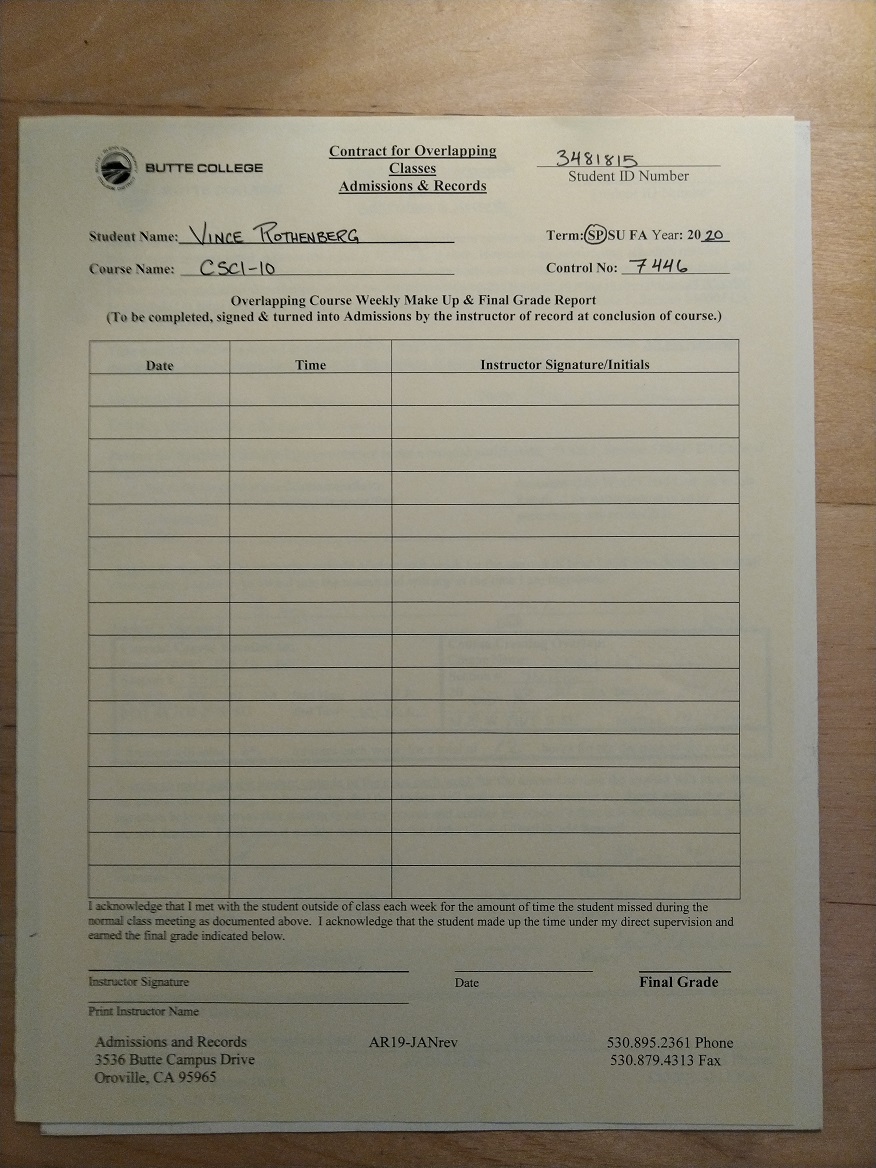 BUTTE COLLEGE
Contract for Overlapping
Classes
Admissions & Records
3481815
Student ID Number
Student Name: VINCE ROTHENBERG
Term: SP SU FA Year: 2020
Course Name: CSCI-10
Control No: 7446
Overlapping Course Weekly Make Up & Final Grade Report
(To be completed, signed & turned into Admissions by the instructor of record at conclusion of course.)
Date Time Instructor Signature/Initials
I acknowledge that I met with the student outside of class each week for the amount of time the student missed during the
normal class meeting as documented above. I acknowledge that the student made up the time under my direct supervision and
earned the final grade indicated below.
Instructor Signature Date Final Grade
Print Instructor Name
Admissions and Records AR19-JANrev 530.895.2361 Phone
3536 Butte Campus Drive 530.879.4313 Fax
Oroville, CA 95965